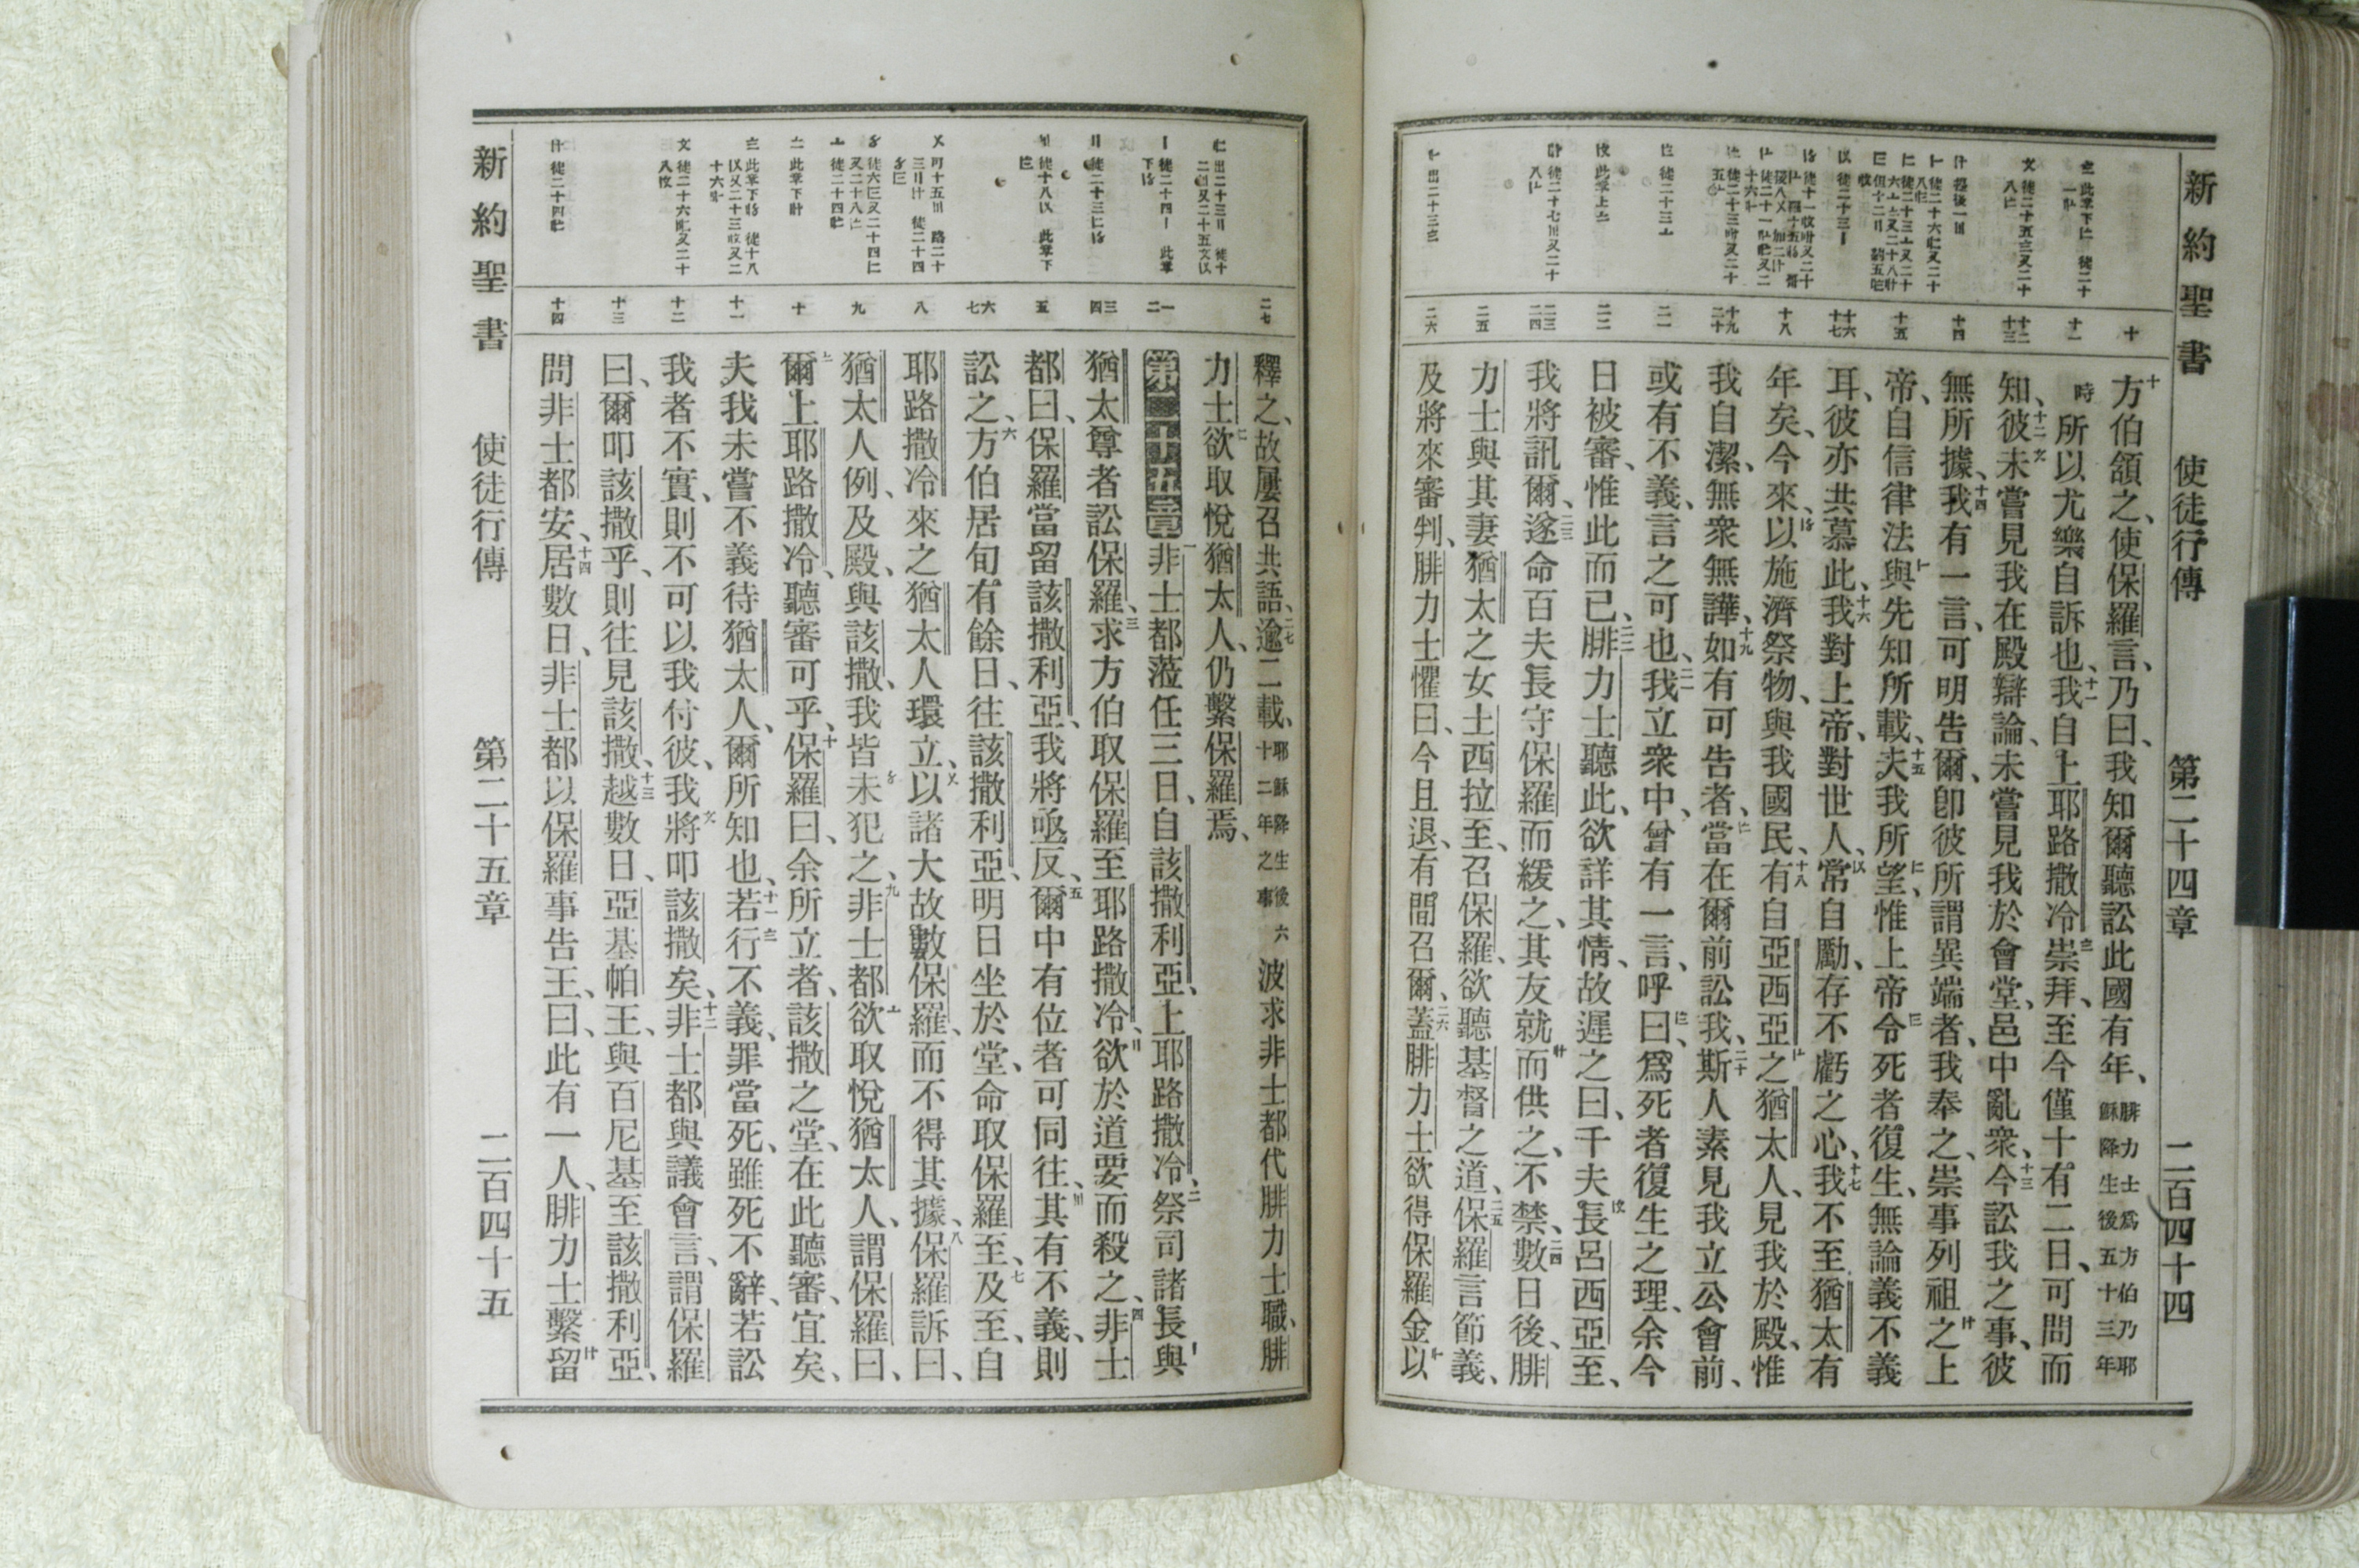 新約聖書 使徒行傳 第二十四章 二百四十四
方伯頷之、使保羅言、乃曰、我知爾聽訟此國有年、腓力士爲方伯乃耶穌降生後五十三年
時所以尤樂自訴也、我自上耶路撒冷崇拜、至今僅十有二日、可問而
知、彼未嘗見我在殿辯論、未嘗見我於會堂、邑中亂衆、今訟我之事、彼
無所據、我有一言、可明告爾、卽彼所謂異端者、我奉之、崇事列祖之上
帝、自信律法與先知所載、夫我所望、惟上帝令死者復生、無論義不義
耳、彼亦共慕此、我對上帝、對世人、常自勵、存不虧之心、我不至猶太有
年矣、今來、以施濟祭物、與我國民、有自亞西亞之猶太人、見我於殿、惟
我自潔、無衆無譁、如有可告者、當在爾前訟我、斯人素見我立公會前、
或有不義、言之可也、我立衆中、曾有一言、呼曰、爲死者復生之理、余今
日被審、惟此而已、腓力士聽此、欲詳其情、故遲之曰、千夫長呂西亞至、
我將訊爾、遂命百夫長守保羅而緩之、其友就而供之、不禁、數日後、腓
力士與其妻猶太之女土西拉至、召保羅、欲聽基督之道、保羅言節義、
及將來審判、腓力士懼曰、今且退、有間召爾、蓋腓力士欲得保羅金以
釋之、故屢召共語、逾二載、耶穌降生後六十二年之事 波求非士都代腓力士職、腓
力士欲取悅猶太人、仍繫保羅焉、
第二十五章 非士都蒞任三日、自該撒利亞、上耶路撒冷、祭司諸長與
猶太尊者訟保羅、求方伯取保羅至耶路撒冷、欲於道要而殺之、非士
都曰、保羅當留該撒利亞、我將亟反、爾中有位者可同往、其有不義、則
訟之、方伯居旬有餘日、往該撒利亞、明日坐於堂、命取保羅至、及至、自
耶路撒冷來之猶太人環立、以諸大故數保羅、而不得其據、保羅訴曰、
猶太人例、及殿、與該撒、我皆未犯之、非士都欲取悅猶太人、謂保羅曰、
爾上耶路撒冷、聽審可乎、保羅曰、余所立者、該撒之堂、在此聽審、宜矣、
夫我未嘗不義待猶太人、爾所知也、若行不義、罪當死、雖死不辭、若訟
我者不實、則不可以我付彼、我將叩該撒矣、非士都與議會言、謂保羅
曰、爾叩該撒乎、則往見該撒、越數日、亞基帕王、與百尼基至該撒利亞、
問非士都安、居數日、非士都以保羅事告王、曰、此有一人、腓力士繫留
新約聖書 使徒行傳 第二十五章 二百四十五